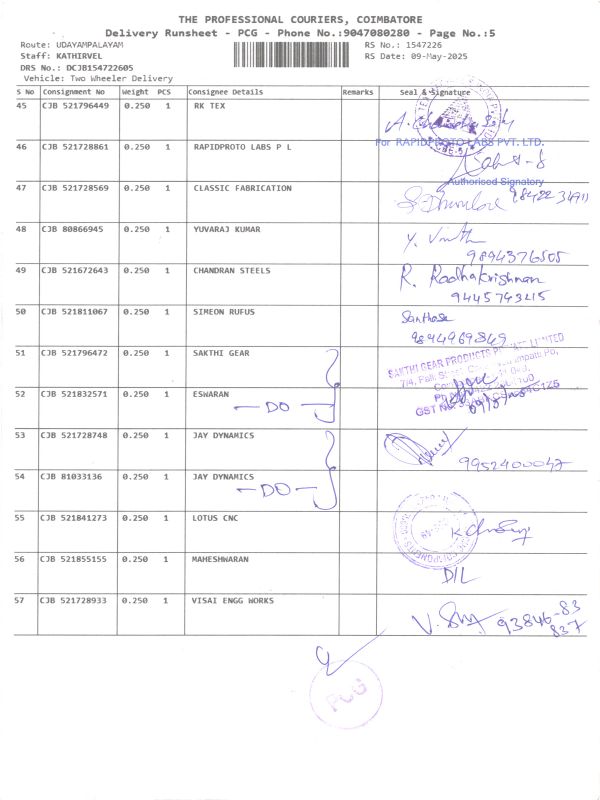 THE PROFESSIONAL COURIERS, COIMBATORE
Delivery Runsheet - PCG - Phone No.:9047080280 - Page No.:5
Route: UDAYAMPALAYAM RS No.: 1547226
Staff: KATHIRVEL RS Date: 09-May-2025
DRS No.: DCJB154722605
Vehicle: Two Wheeler Delivery
S No Consignment No Weight PCS Consignee Details Remarks Seal & Signature
45 CJB 521796449 0.250 1 RK TEX
46 CJB 521728861 0.250 1 RAPIDPROTO LABS P L For RAPIDPROTO LABS PVT. LTD.
Authorised Signatory
47 CJB 521728569 0.250 1 CLASSIC FABRICATION
48 CJB 80866945 0.250 1 YUVARAJ KUMAR
9894376505
49 CJB 521672643 0.250 1 CHANDRAN STEELS R. Radhakrishnan
9445743215
50 CJB 521811067 0.250 1 SIMEON RUFUS Santhose
9894969849
51 CJB 521796472 0.250 1 SAKTHI GEAR SAKTHI GEAR PRODUCTS PRIVATE LIMITED
52 CJB 521832571 0.250 1 ESWARAN
- DO -
53 CJB 521728748 0.250 1 JAY DYNAMICS
9952400047
54 CJB 81033136 0.250 1 JAY DYNAMICS
- DO -
55 CJB 521841273 0.250 1 LOTUS CNC
56 CJB 521855155 0.250 1 MAHESHWARAN
DIL
57 CJB 521728933 0.250 1 VISAI ENGG WORKS
93846-83
837
PCG